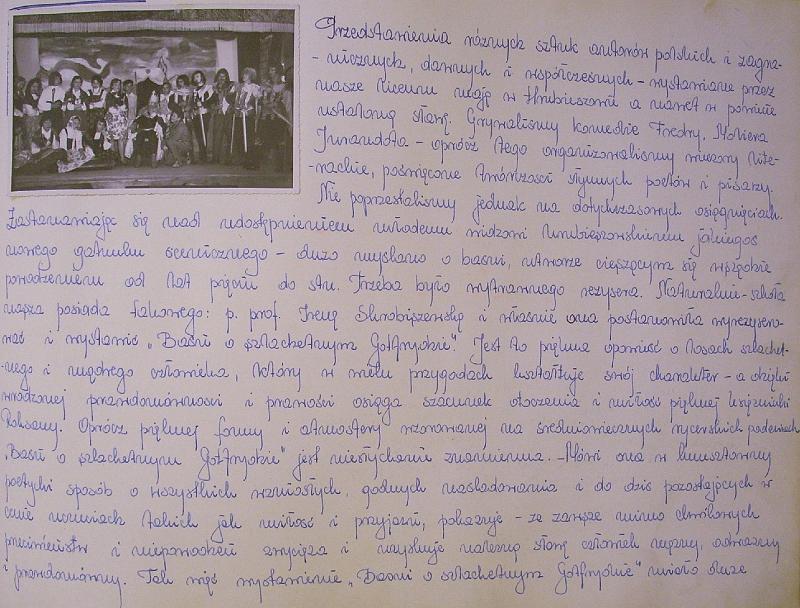 Przedstawienia różnych sztuk autorów polskich i zagra-
- nicznych, dawnych i współczesnych - wystawiane przez
nasze liceum mają w Hrubieszowie a nawet w powiecie
ustaloną sławę. Grywaliśmy komedie Fredry, Moliera
Jurandota - oprócz tego organizowaliśmy wieczory lite-
-rackie, poświęcone twórczości słynnych poetów i pisarzy.
Nie poprzestaliśmy jednak na dotychczasowych osiągnięciach.
Zastanawiając się nad udostępnieniem młodemu widzowi hrubieszowskiemu jakiegoś
nowego gatunku scenicznego - dużo myślano o baśni, utworze cieszącym się wszędzie
powodzeniem od lat pięciu do stu. Trzeba było wytrawnego reżysera. Naturalnie - szkoła
nasza posiada takowego: p. prof. Irenę Skrobiszewską i właśnie ona postanowiła wyreżysero-
wać i wystawić „Baśń o szlachetnym Gotfrydzie". Jest to piękna opowieść o losach szlachet-
-nego i mądrego człowieka, który w wielu przygodach kształtuje swój charakter - a dzięki
wrodzonej prawdomówności i prawości osiąga szacunek otoczenia i miłość pięknej księżniczki
Roksany. Oprócz pięknej formy i atmosfery wzorowanej na średniowiecznych rycerskich podaniach
„Baśń o szlachetnym Gotfrydzie" jest niesłychanie znamienna. - Mówi ona w kunsztowny
poetycki sposób o wszystkich wzniosłych, godnych naśladowania i do dziś pozostających w
cenie uczuciach takich jak miłość i przyjaźń, pokazuje - że zawsze mimo chwilowych
przeciwieństw i niepowodzeń zwycięża i uzyskuje należną sławę człowiek mężny, odważny
i prawdomówny. Tak więc wystawienie „Baśni o szlachetnym Gotfrydzie" miało duże